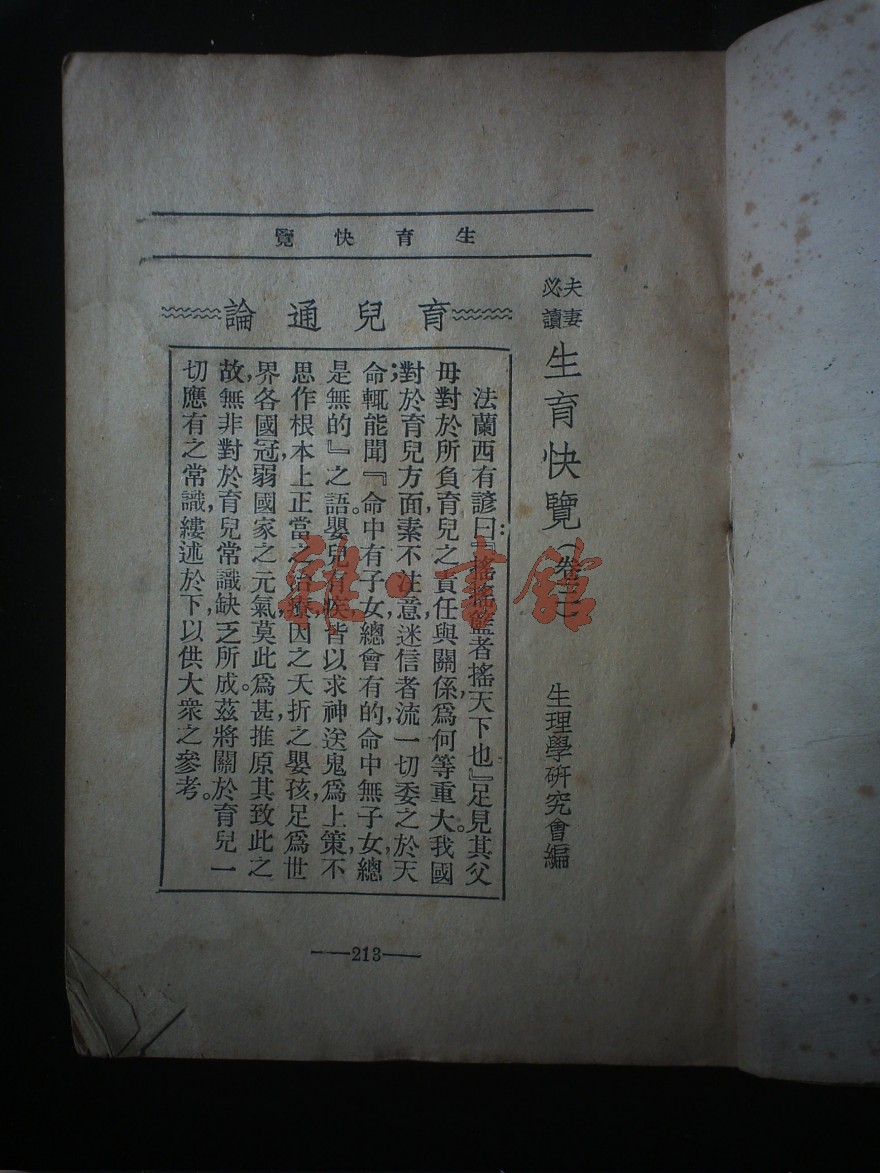 生育快覽
夫妻必讀 生育快覽（卷
生理學研究會編
育兒通論
法蘭西有諺曰：『搖搖籃者搖天下也』足見其父
母對於所負育兒之責任與關係，爲何等重大。我國
對於育兒方面，素不注意，迷信者流，一切委之於天
命；輒能聞『命中有子女總會有的，命中無子女總
是無的』之語。嬰兒有疾皆以求神送鬼爲上策，不
思作根本上正當之治療，因之夭折之嬰孩，足爲世
界各國冠，弱國家之元氣，莫此爲甚。推原其致此之
故，無非對於育兒常識缺乏所成。茲將關於育兒一
切應有之常識，縷述於下，以供大衆之參考。
—213—
雜·書館